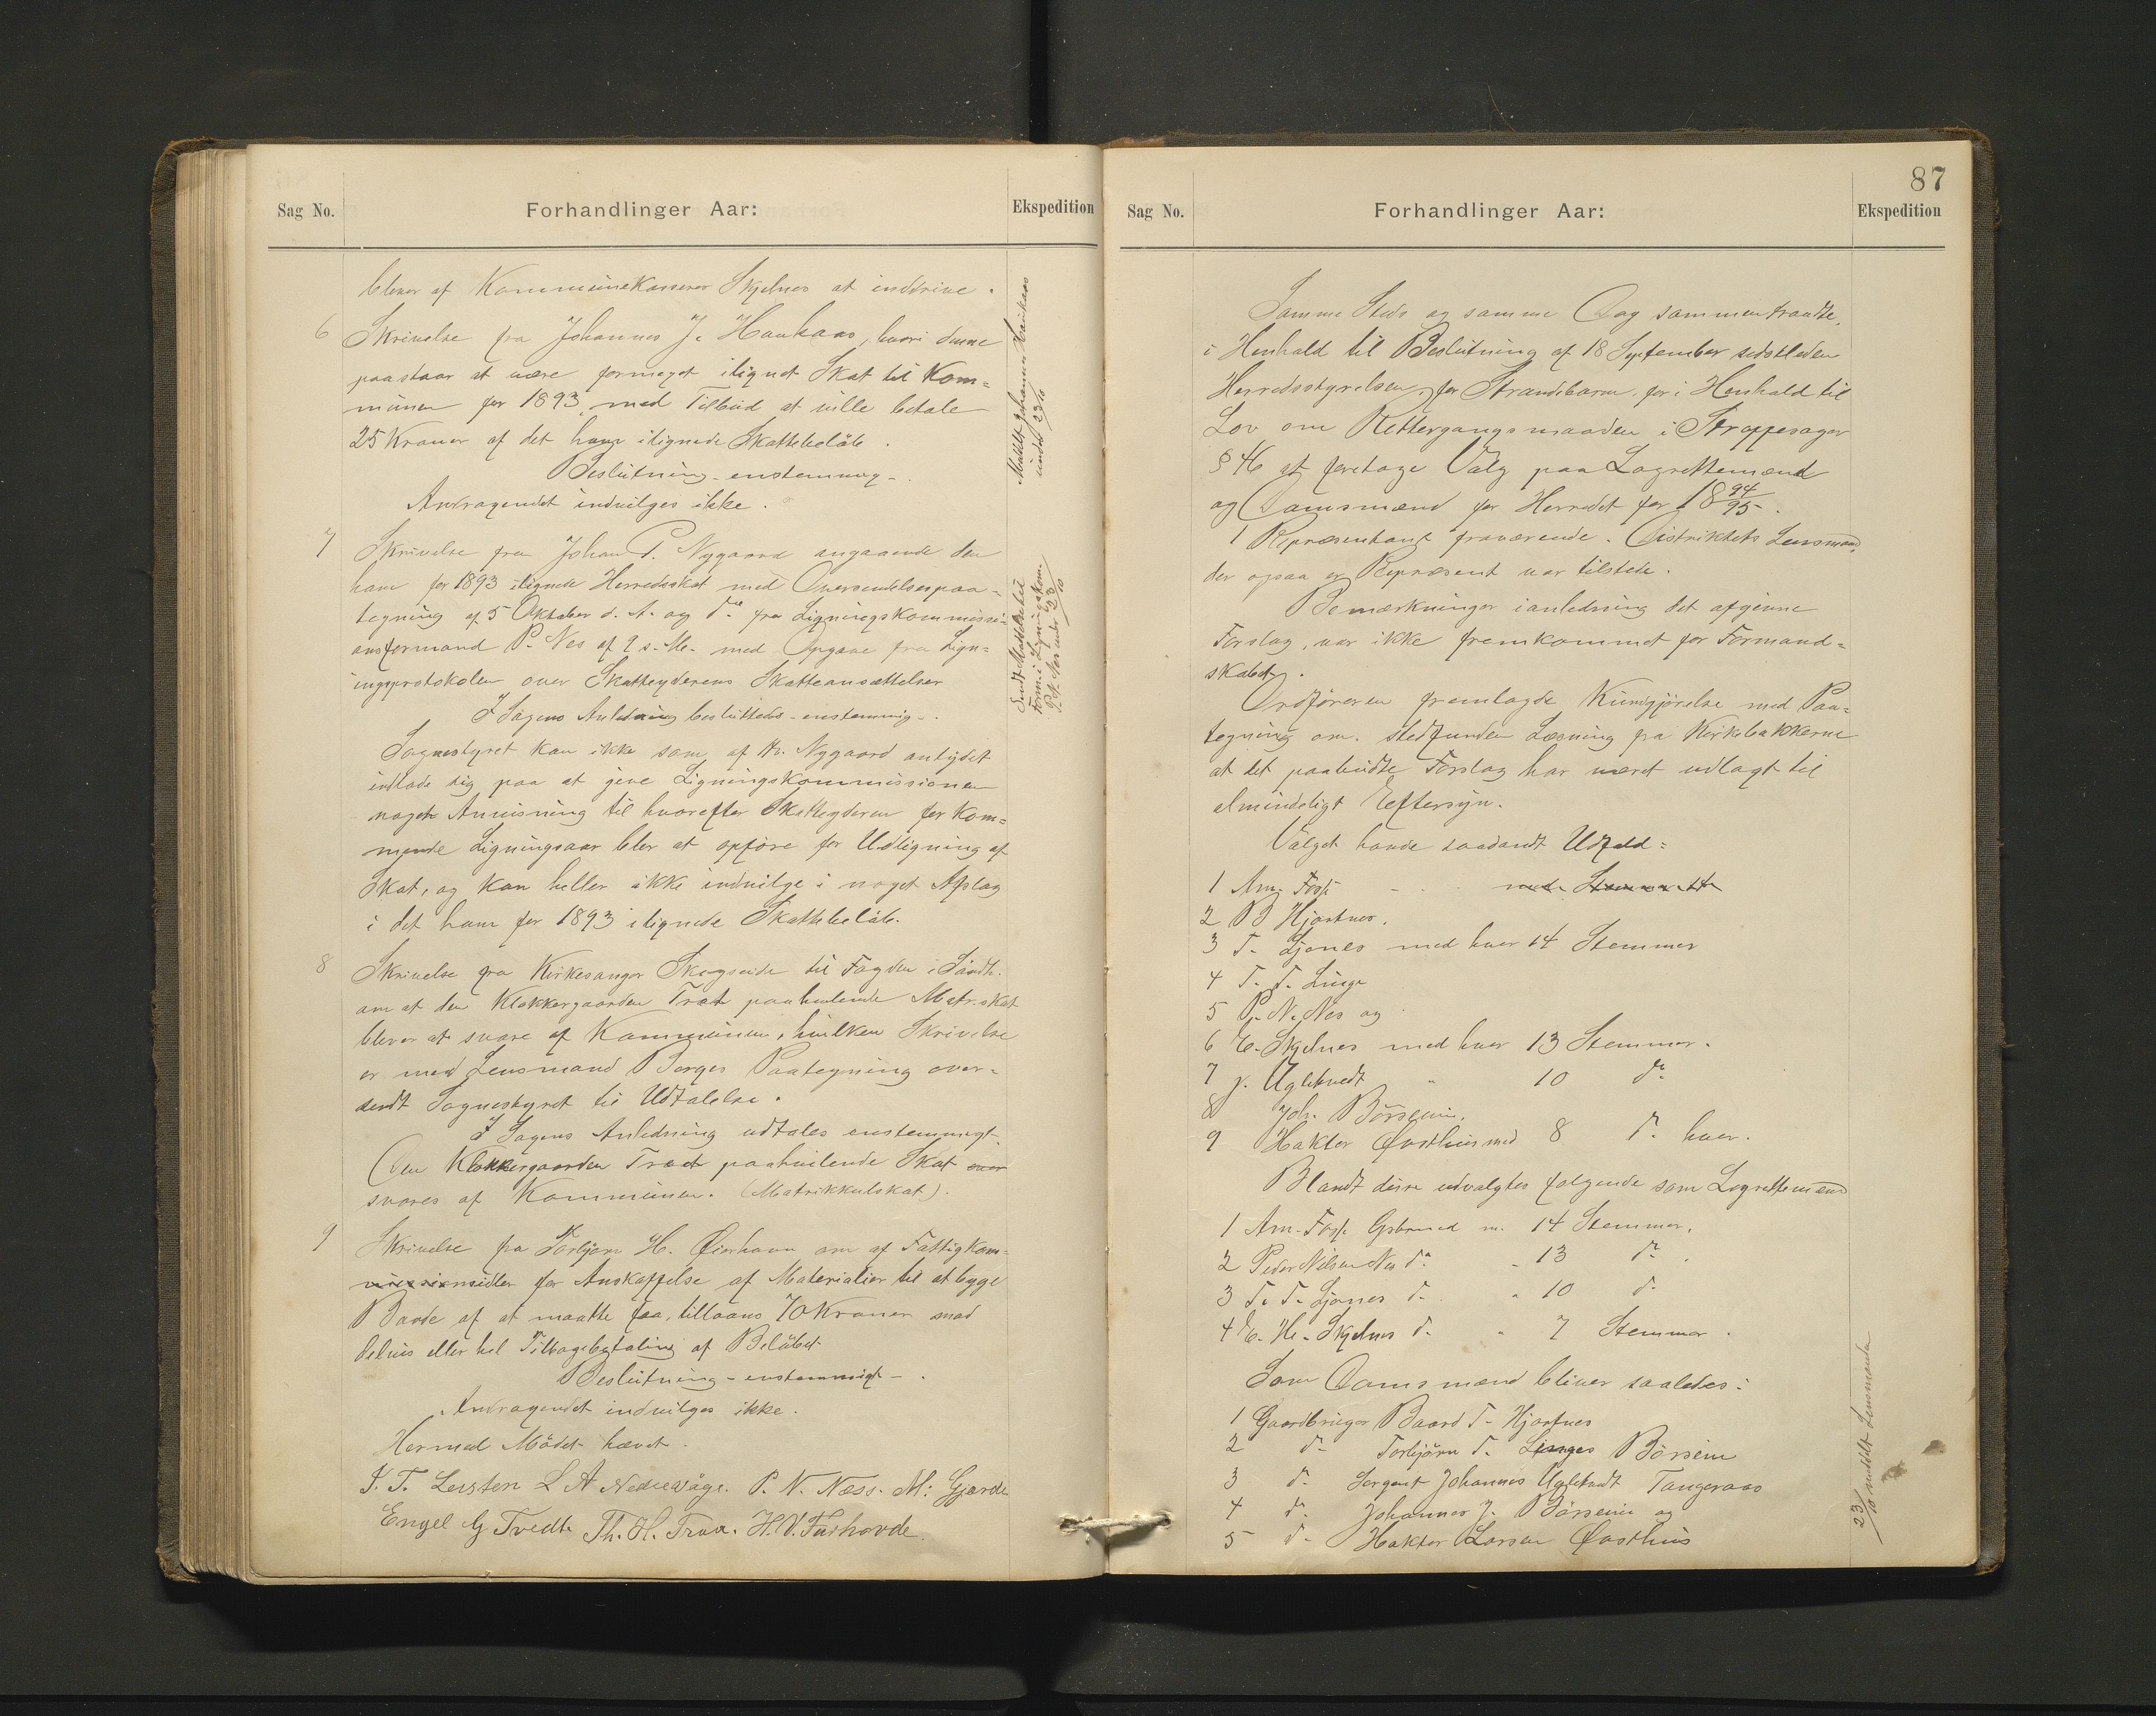 Sag No. Forhandlinger Aar: Ekspedition
bliver af Kommunekasserer Skjelnes at inddrive.
6 Skrivelse fra Johannes J. Haukaas, hvori denne
paastaar at være formeget ilignet Skat til Kom=
munen for 1893, med Tilbud at ville betale
25 Kroner af det ham ilignede Skattebeløb.
Beslutning - enstemmig -.
Andragendet indvilges ikke.
Meddelt Johannes Haukaas
under 23/10
7 Skrivelse fra Johan P. Nygaard angaaende den
ham for 1893 ilignede Herredsskat med Oversendelsespaa-
tegning af 5 Oktober d. A. og do fra Ligningskommissi-
onsformand P. Nes af 9 s. M. med Opgave fra Lign=
ingsprotokolen over Skatteyderens Skatteansættelser
I Sagens Anledning besluttedes - enstemmig -.
Sognestyret kan ikke som af Hr. Nygaard antydet
indlade sig paa at give Ligningskommissionen
nogen Anvisning til hvorefter Skatteyderen for kom=
mende Ligningsaar blev at opføre for Udligning af
Skat, og kan heller ikke indvilge i noget Afslag
i det ham for 1893 ilignede Skattebeløb.
Sendt Meddelelse til
Form. i Ligningskom.
P. N. Nes under 23/10
8 Skrivelse fra Kirkesanger Skogseide til Fogden i Søndh.
om at den Klokkergaarden Træt paahvilende Matr.skat
bliver at svare af Kommunen, hvilken Skrivelse
er med Lensmand Berges Paategning over-
sendt Sognestyret til Udtalelse.
I Sagens Anledning udtales enstemmigt
Den Klokkergaarden Træt paahvilende Skat
svares af Kommunen. (Matrikkulskat).
9 Skrivelse fra Torbjørn H. Øierhavn om af Fattigkom=
missionsidler for Anskaffelse af Materialier til at bygge
Baade af at maatte faa tillaans 70 Kroner mod
delvis eller hel Tilbagebetaling af Beløbet
Beslutning - enstemmigt -.
Andragendet indvilges ikke.
Hermed Mødet hævet.
T. Leisten L A Nedrevåge. P. N. Næss. M: Gjerde
Engel G Tvedt Th. H. Traa. H. V. Fuhovde.
87
Sag No. Forhandlinger Aar: Ekspedition
Samme Sted og samme Dag sammentraadte,
i Henhold til Beslutning af 18 September sidstleden
Herredsstyrelsen for Strandebarm, for i Henhold til
Lov om Rettergangsmaaden i Straffesager
§ 46 at foretage Valg paa Lagrettemænd
og Domsmænd for Herredet for 18 94/95.
1 Repræsentant fraværende. Distriktets Lensmand,
der ogsaa er Repræsent var tilstede.
Bemærkninger i anledning det afgivne
Forslag, var ikke fremkommet for Formand=
skabet.
Ordføreren fremlagde Kundgjørelse med Paa=
tegning om stedfunden Læsning fra Kirkebakkerne
at det paabudte Forslag har været udlagt til
almindeligt Eeftersyn.
Valget havde saadandt Udfald:
1 Am. Foss
2 B Hjartnes.
3 T. Ljones med hver 14 Stemmer
4 T. T. Linge
5 P. N. Nes og
6 E. Skjelnes med hver 13 Stemmer.
7 J. Ugletvedt " 10 do
8 Joh. Børsheim.
9 Haktor Øvsthus med 8 do hver.
Blandt disse udvalgtes følgende som Lagrettemænd
1 Am. Foss Grbrmd m. 14 Stemmer.
2 Peder Nilsen Nes do - 13 do.
3 T. T. Ljones do " 10 do
4 E. H. Skjelnes do " 7 Stemmer.
Som Domsmænd bliver saaledes:
1 Gaardbruger Baard T. Hjartnes
2 do Torbjørn T. Linge Børsein
3 do Sergent Johannes Ugletvedt Tangeraas
4 do Johannes J. Børsein og
5 do Haktor Larsen Øvsthus
23/10 meddelt Lensmanden